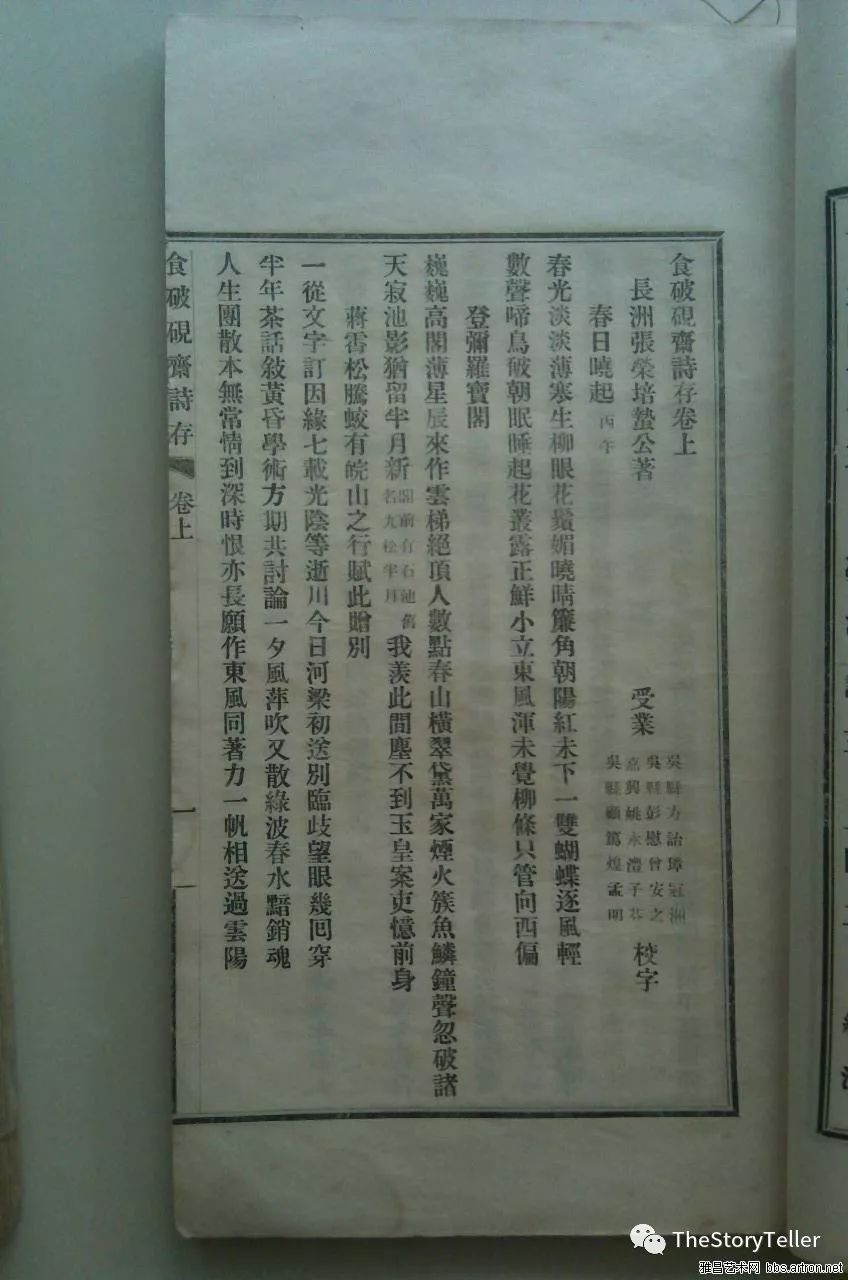 食破硯齋詩存卷上
長洲張榮培蟄公著
受業
吳縣方詒璋冠洲
吳縣彭慰曾安之
嘉興姚永澧子芬
吳縣顧篤煌孟明
校字
春日曉起 丙午
春光淡淡薄寒生柳眼花鬚媚曉晴簾角朝陽紅未下一雙蝴蝶逐風輕
數聲啼鳥破朝眠睡起花叢露正鮮小立東風渾未覺柳條只管向西偏
登彌羅寶閣
巍巍高閣薄星辰來作雲梯絕頂人數點春山橫翠黛萬家煙火簇魚鱗鐘聲忽破諸
天寂池影猶留半月新 閣前有石池舊名九松半月 我羨此間塵不到玉皇案吏憶前身
蔣雲松騰蛟有皖山之行賦此贈別
一從文字訂因緣七載光陰等逝川今日河梁初送別臨歧望眼幾回穿
半年茶話敍黃昏學術方期共討論一夕風萍吹又散綠波春水黯銷魂
人生團散本無常情到深時恨亦長願作東風同著力一帆相送過雲陽
食破硯齋詩存 卷上
一
TheStoryTeller
雅昌艺术网 bbs.artron.net